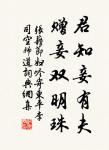 君知妾有夫
赠妾双明珠
张籍节妇吟寄东平李
司空师道词典网集